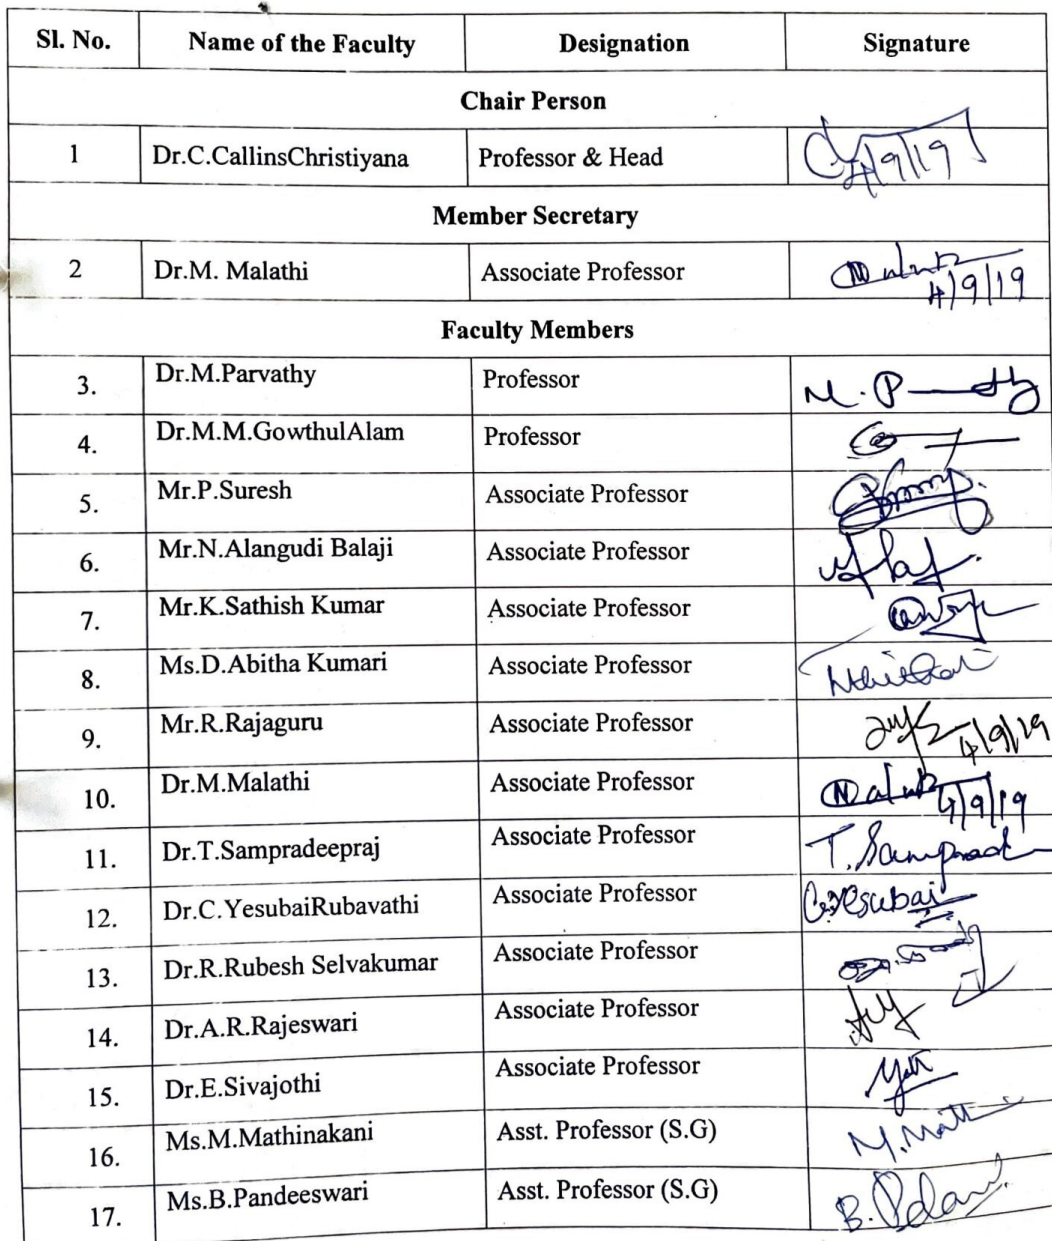 Sl. No. Name of the Faculty Designation Signature
Chair Person
1 Dr.C.CallinsChristiyana Professor & Head 4/9/19
Member Secretary
2 Dr.M. Malathi Associate Professor 4/9/19
Faculty Members
3. Dr.M.Parvathy Professor M. P
4. Dr.M.M.GowthulAlam Professor
5. Mr.P.Suresh Associate Professor
6. Mr.N.Alangudi Balaji Associate Professor
7. Mr.K.Sathish Kumar Associate Professor
8. Ms.D.Abitha Kumari Associate Professor
9. Mr.R.Rajaguru Associate Professor 4/9/19
10. Dr.M.Malathi Associate Professor 4/9/19
11. Dr.T.Sampradeepraj Associate Professor T. Samprad
12. Dr.C.YesubaiRubavathi Associate Professor C.Yesubai
13. Dr.R.Rubesh Selvakumar Associate Professor
14. Dr.A.R.Rajeswari Associate Professor
15. Dr.E.Sivajothi Associate Professor
16. Ms.M.Mathinakani Asst. Professor (S.G) M.Math
17. Ms.B.Pandeeswari Asst. Professor (S.G) B.